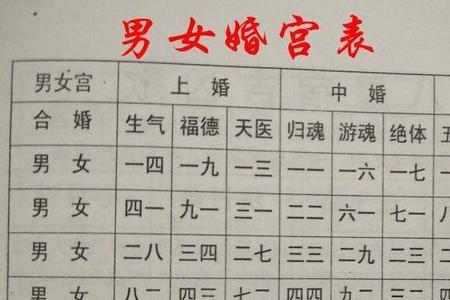 男女婚宫表
男女宫 上 婚 中 婚
合 婚 生气 福德 天医 归魂 游魂 绝体
男 女 一四 一九 一三 一一 一六 一七
男 女 四一 九一 三一 二二 六一 七一
男 女 二八 三四 二七 三三 二九 二三
男 女 八二 四三 七二 四四